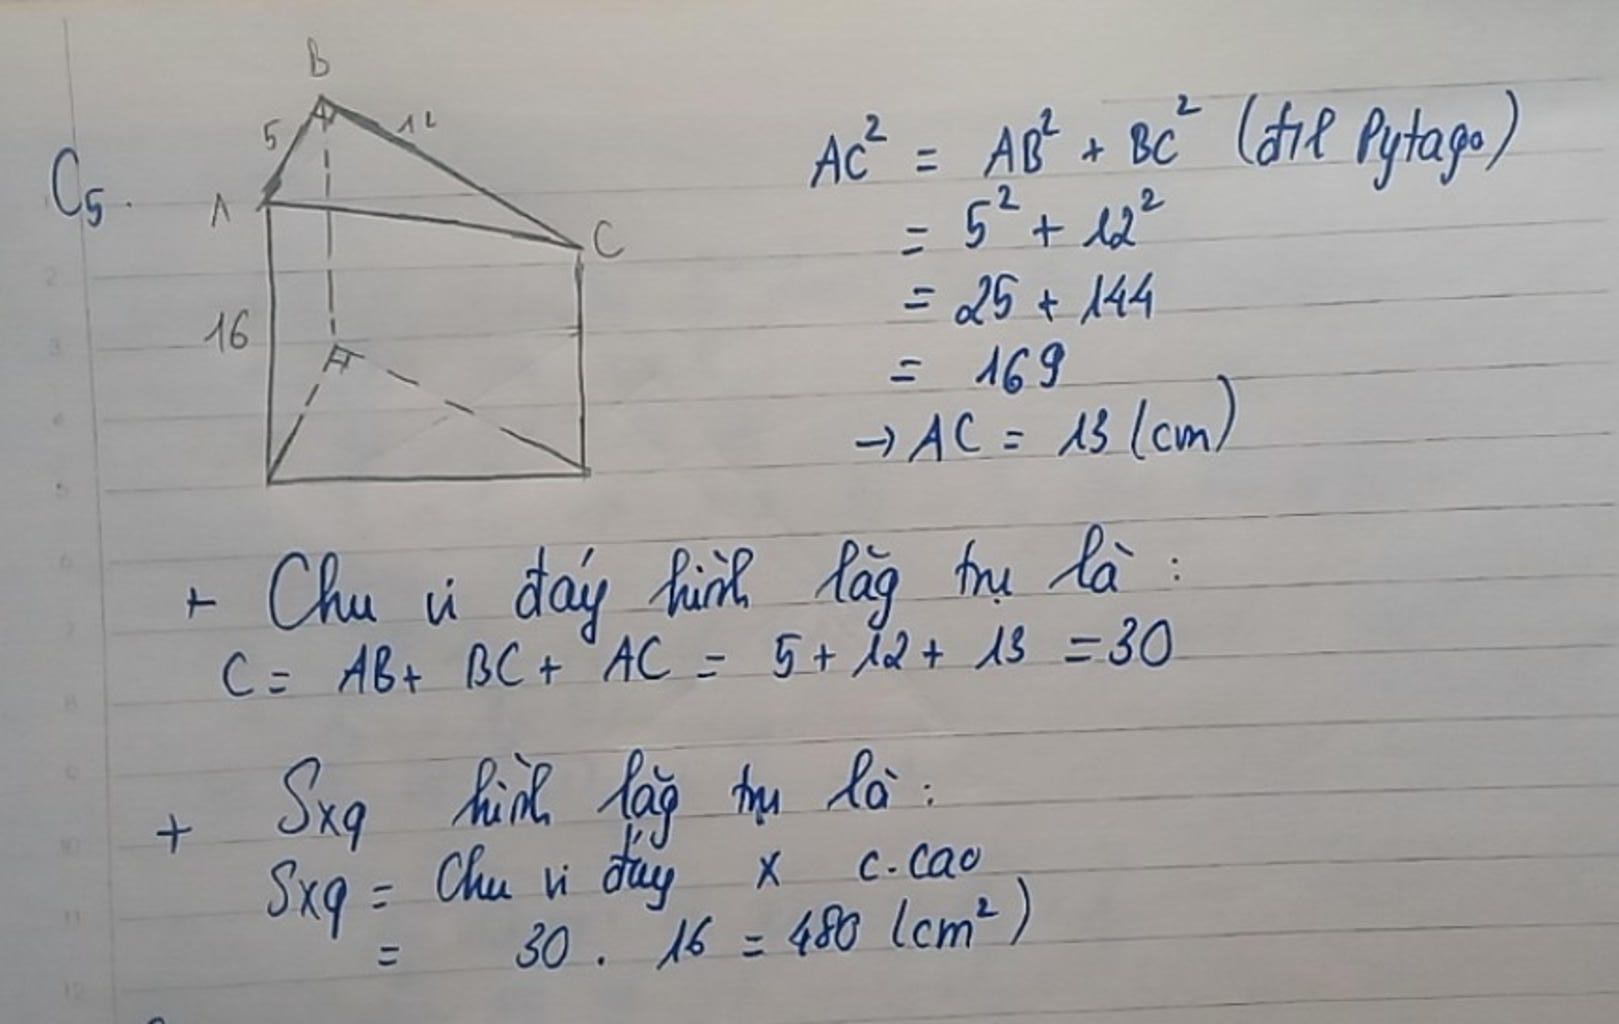 B
5 12
C5.
A
C
16
AC² = AB² + BC² (đll Pytago)
= 5² + 12²
= 25 + 144
= 169
→ AC = 13 (cm)
+ Chu vi đáy hình lăg trụ là :
C = AB + BC + AC = 5 + 12 + 13 = 30
+ Sxq hình lăg trụ là :
Sxq = Chu vi đáy x c.cao
= 30 . 16 = 480 (cm²)